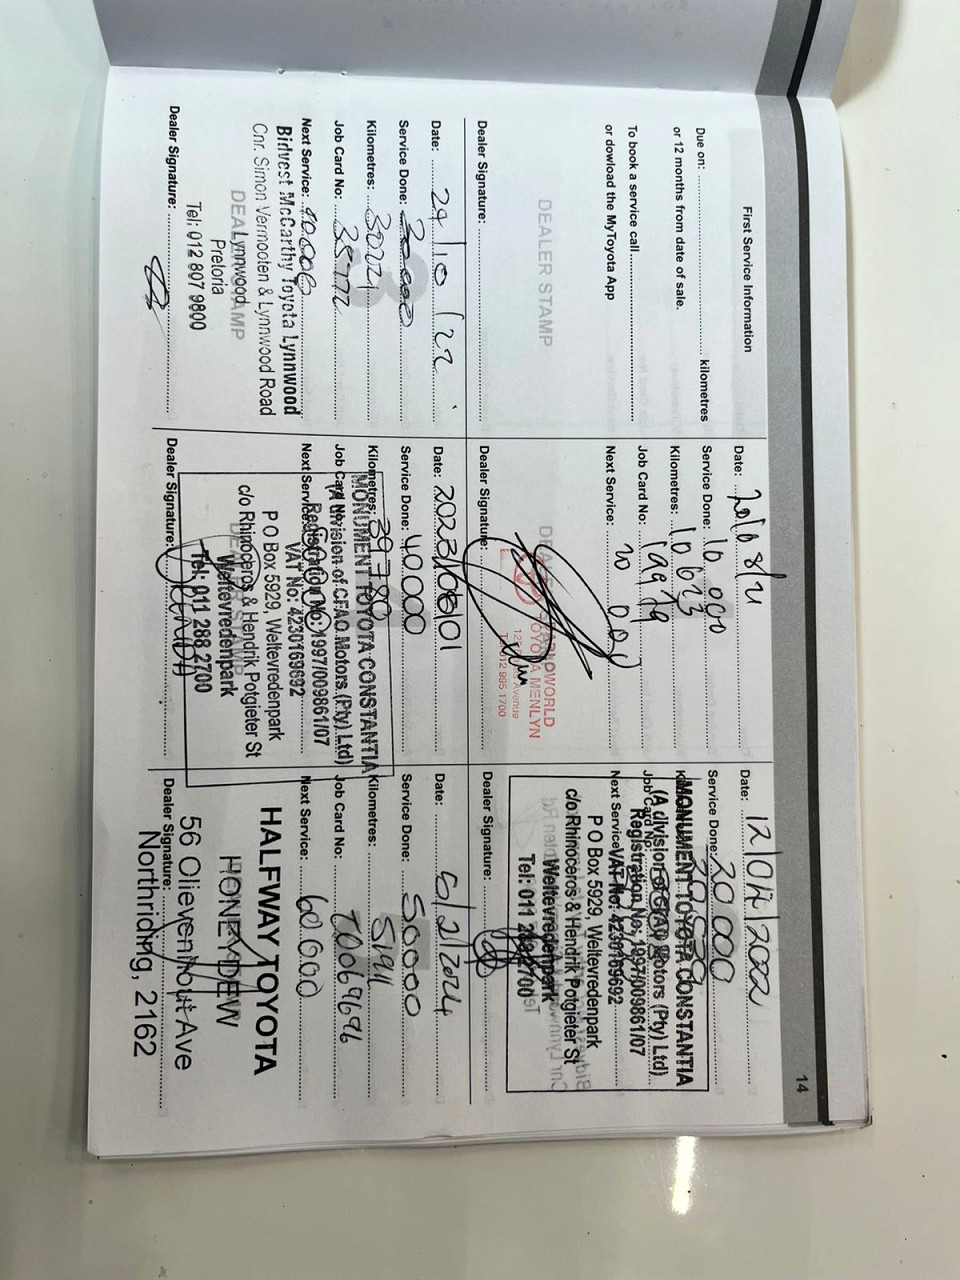 14
First Service Information
Due on: kilometres
or 12 months from date of sale.
To book a service call
or dowload the MyToyota App
DEALER STAMP
Dealer Signature:
Date:
Service Done: 10 000
Kilometres: 10 623
Job Card No:
Next Service: 20 000
TOYOTA MENLYN
Avenue
Tel: 012 995 1700
Dealer Signature:
Date: 12/04/2022
Service Done: 20 000
MONUMENT TOYOTA CONSTANTIA
(A division of CFAO Motors (Pty) Ltd)
Job Card No:
Registration No: 1997/009861/07
Next Service: VAT No: 4230169692
P O Box 5929, Weltevredenpark
c/o Rhinoceros & Hendrik Potgieter St
Weltevredenpark
Tel: 011 288 2700
Dealer Signature:
Date: 24/10/22
Service Done: 30 000
Kilometres: 30221
Job Card No: 35772
Next Service: 40.000
Bidvest McCarthy Toyota Lynnwood
Cnr. Simon Vermooten & Lynnwood Road
DEALER STAMP
Lynnwood
Pretoria
Tel: 012 807 9800
Dealer Signature:
Date: 2023/06/01
Service Done: 40000
Kilometres: 39780
MONUMENT TOYOTA CONSTANTIA
Job Card No:
(A division of CFAO Motors (Pty) Ltd)
Next Service:
Registration No: 1997/009861/07
VAT No: 4230169692
P O Box 5929, Weltevredenpark
c/o Rhinoceros & Hendrik Potgieter St
Weltevredenpark
Tel: 011 288 2700
Dealer Signature:
Date: 5/2/2024
Service Done: 50000
Kilometres: 51911
Job Card No: 70069696
Next Service: 60.000
HALFWAY TOYOTA
HONEYDEW
56 Olievenhout Ave
Dealer Signature:
Northriding, 2162